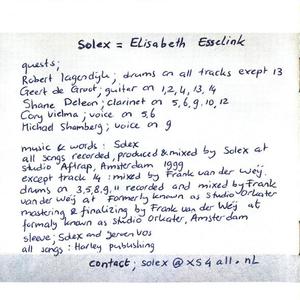 Solex = Elisabeth Esselink
guests;
Robert lagendijk; drums on all tracks exept 13
Geert de Groot; guitar on 1,2,4,13,14
Shane Deleon; clarinet on 5,6,9,10,12
Cory Vielma; voice on 5,6
Michael Shamberg; voice on 9
music & words: Solex
all songs recorded, produced & mixed by Solex at
studio Aftrap, Amsterdam 1999
except track 14: mixed by Frank van der Weij.
drums on 3,5,8,9,11 recorded and mixed by Frank
van der Weij at Formerly known as Studio Orkater
mastering & finalizing by Frank van der Weij at
formaly known as studio Orkater, Amsterdam
sleeve; Solex and Jeroen Vos
all songs: Harley publishing
contact; solex @ xs4all.nl